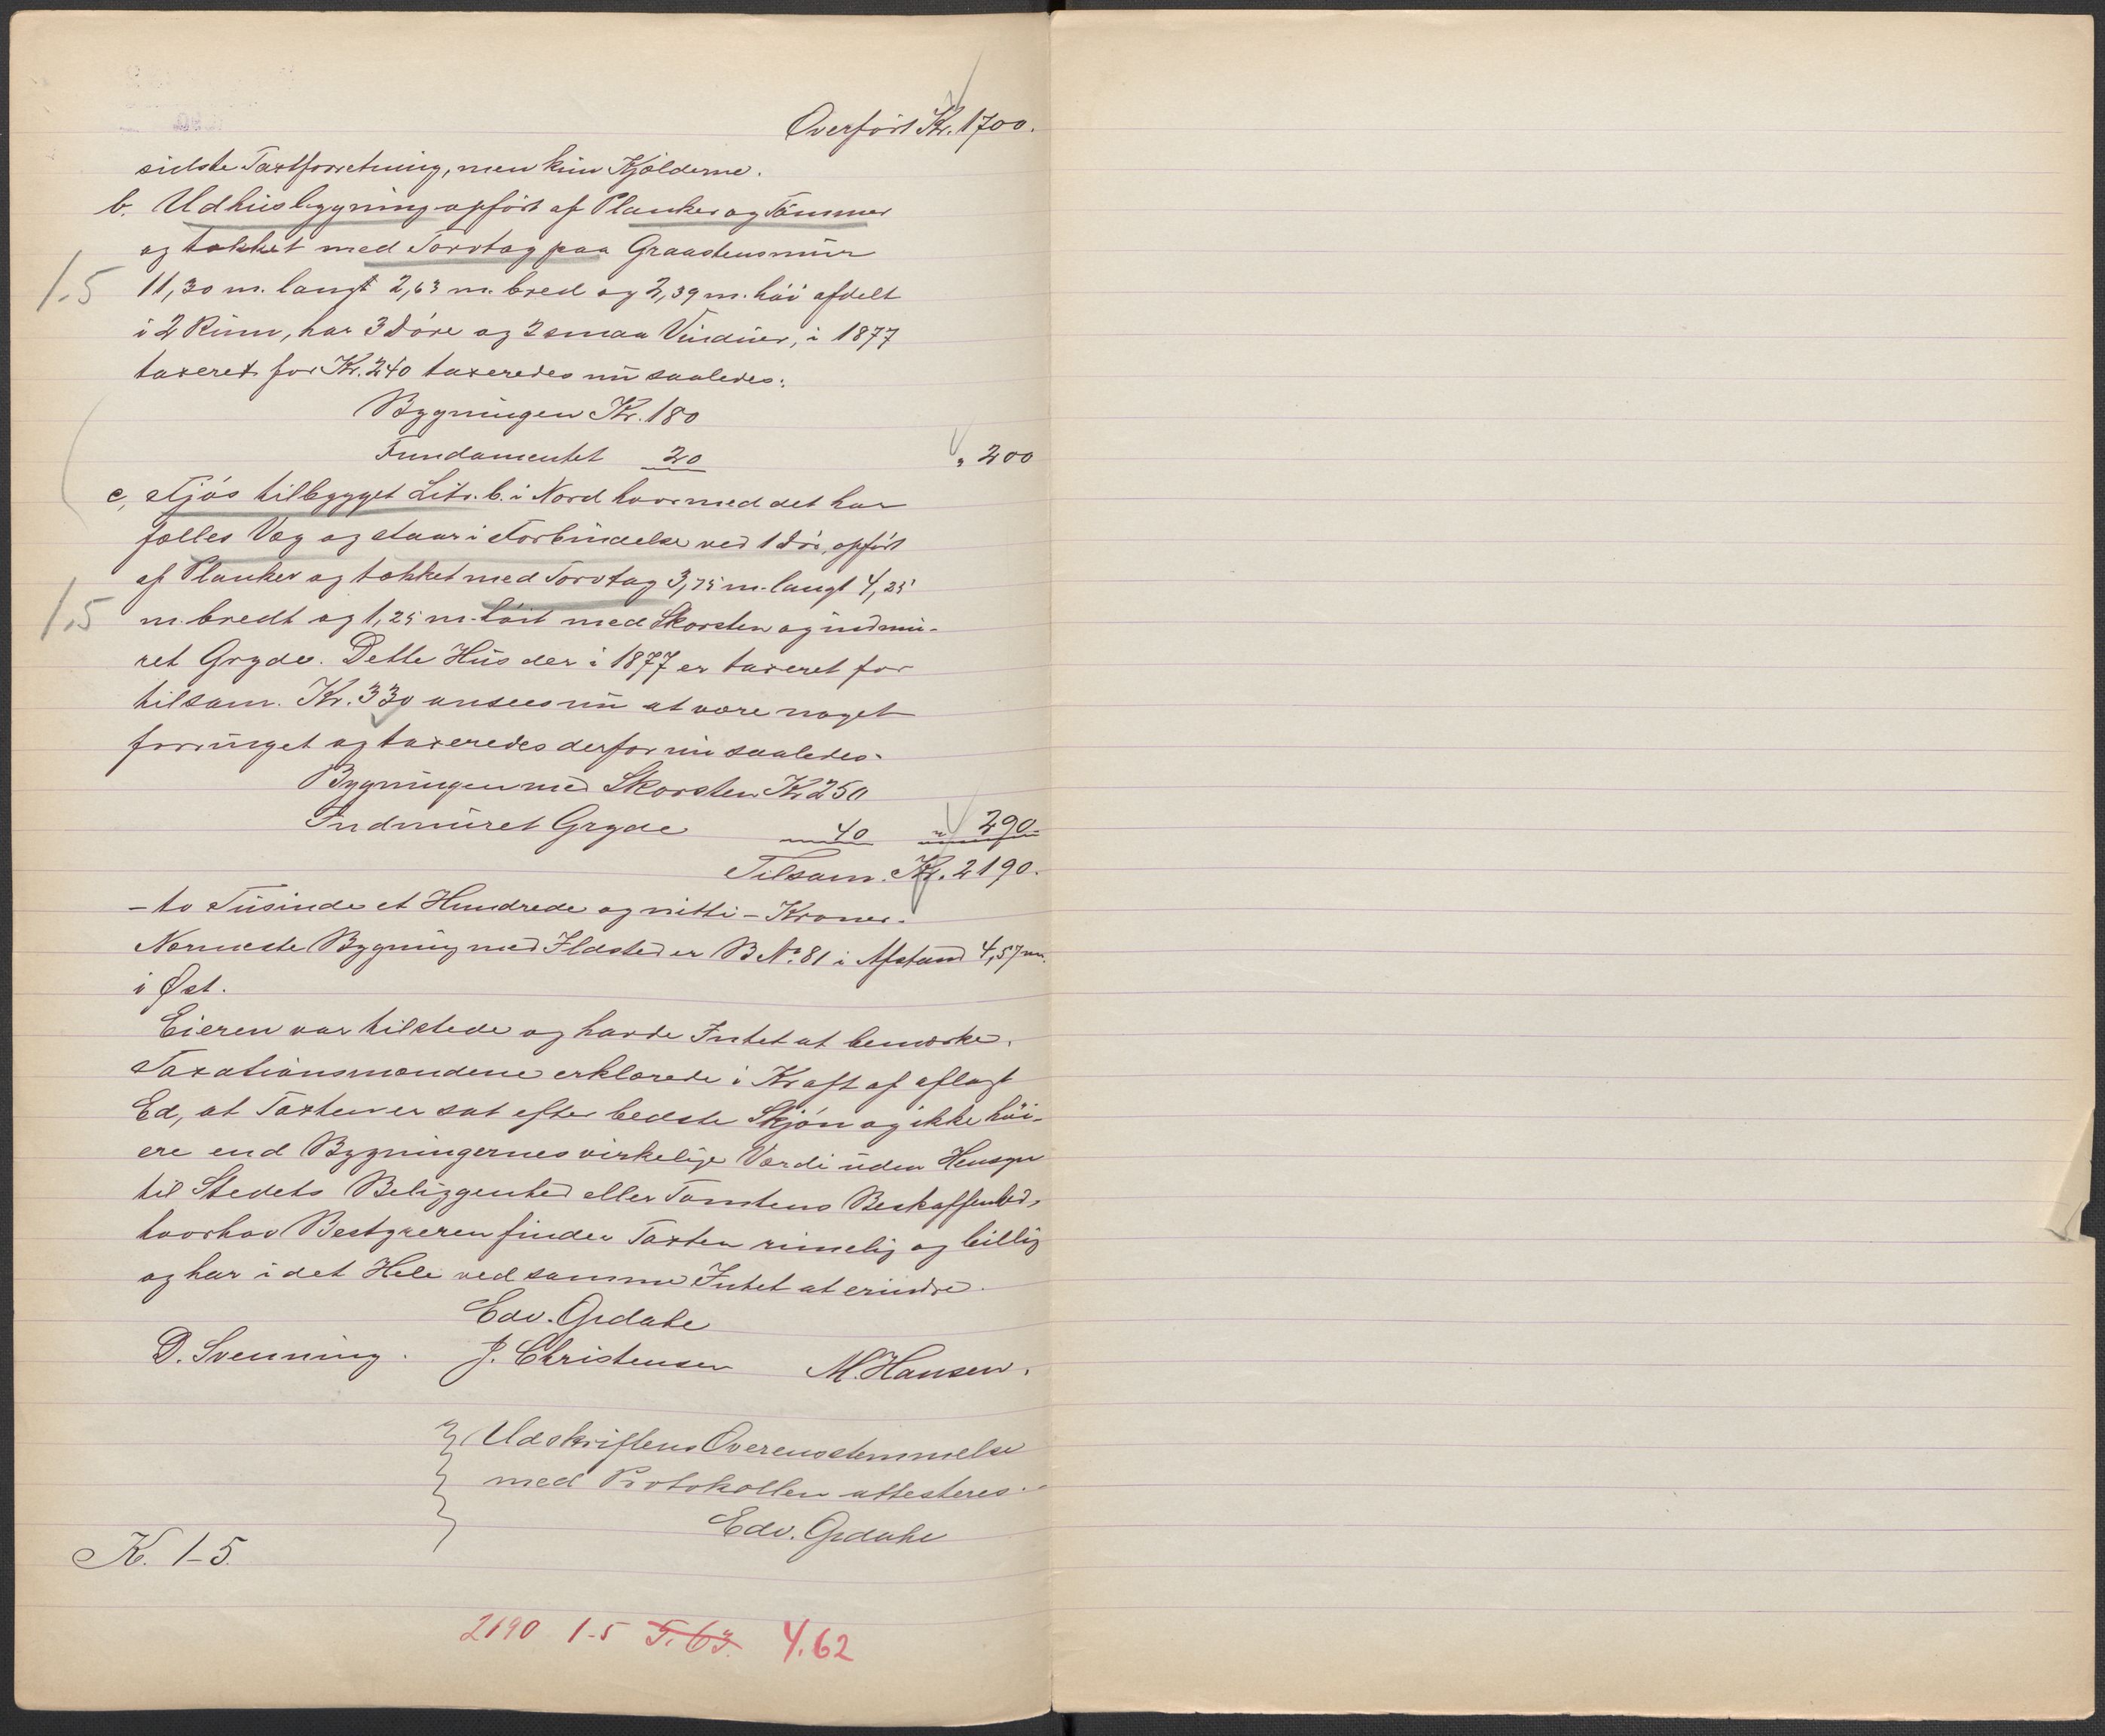 Overført Kr. 1700.
sidste Taxtforretning, men kun Kjælderne.
b. Udhusbygning opført af Planker og Tømmer
og tækket med Torvtag paa Graastensmur
1.5 11,30 m. langt 2,63 m. bred og 2,39 m. høi afdelt
i 2 Rum, har 3 Døre og 2 smaa Vinduer, i 1877
taxeret for Kr. 240 taxeredes nu saaledes:
Bygningen Kr. 180
Fundamentet 20 " 200
c, Fjøs tilbygget Litr. b. i Nord hvormed det har
fælles Væg og staar i Forbindelse ved 1 Dør, opført
af Planker og tækket med Torvtag 3,75 m. langt 4,25
1.5 m. bredt og 1,25 m. høit med Skorsten og indmu-
ret Gryde. Dette Hus der i 1877 er taxeret for
tilsam. Kr. 330 ansees nu at være noget
forringet og taxeredes derfor nu saaledes.
Bygningen med Skorsten Kr 250
Indmuret Gryde 40 " 290
Tilsam. Kr. 2190.
- to Tusinde et Hundrede og nitti - Kroner.
Nærmeste Bygning med Ildsted er B No. 81 i Afstand 4,57 m.
i Øst.
Eieren var tilstede og havde Intet at bemærke.
Taxationsmændene erklærede i Kraft af aflagt
Ed, at Taxten er sat efter bedste Skjøn og ikke høi-
ere end Bygningernes virkelige Værdi uden Hensyn
til Stedets Beliggenhed eller Tomtens Beskaffenhed,
hvorhos Bestyreren finder Taxten rimelig og billig
og har i det Hele ved samme Intet at erindre.
Edv.
D. Svenning. J. Christensen M. Hansen.
Udskriftens Overensstemmelse
med Protokollen attesteres.
Edv.
K. 1-5.
2190 1-5 5.63. 4.62